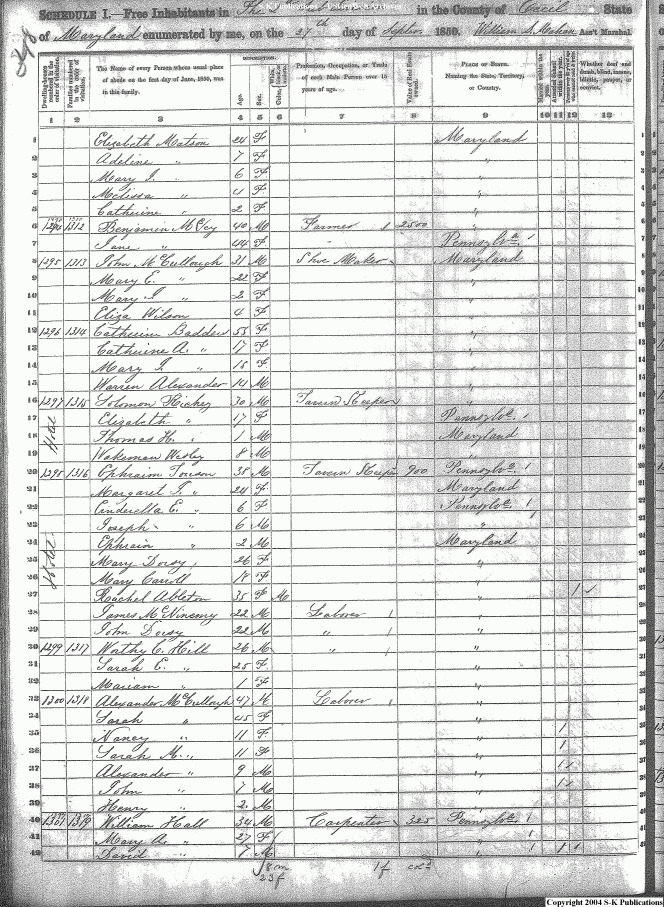 SCHEDULE I.—Free Inhabitants in The in the County of Cecil State
of Maryland enumerated by me, on the 27th day of Septem 1850. William S. Ass't Marshal.
Dwelling-houses numbered in the order of visitation.
Families numbered in the order of visitation.
The Name of every Person whose usual place of abode on the first day of June, 1850, was in this family.
DESCRIPTION.
Age.
Sex.
Color.
Profession, Occupation, or Trade of each Male Person over 15 years of age.
Value of Real Estate owned.
PLACE OF BIRTH. Naming the State, Territory, or Country.
Married within the year.
Whether deaf and dumb, blind, insane, idiotic, pauper, or convict.
1 2 3 4 5 6 7 8 9 10 11 12 13
1 Elizabeth Matson 24 F Maryland
2 Adeline " 7 F "
3 Mary J. " 6 F "
4 Melissa " 4 F "
5 Catherine " 2 F "
6 1312 Benjamin McVey 40 M Farmer 2500 "
7 Jane " 44 F Pennsylva.
8 1295 1313 John McCullough 31 M Shoe Maker Maryland
9 Mary E. " 22 F "
10 Mary J " 2 F "
11 Eliza Wilson 4 F "
12 1296 1314 Catherine Badders 55 F "
13 Catherine A. " 17 F "
14 Mary J. " 15 F "
15 Warren Alexander 14 M "
16 1297 1315 Solomon Hickey 30 M Tavern Keeper "
17 Elizabeth " 17 F Pennsylva.
Hotel
18 Thomas H. " 1 M Maryland
19 Wakeman Wesley 8 M "
20 1298 1316 Ephraim 38 M Tavern Keeper 900 Pennsylva.
21 Margaret J. " 24 F Maryland
22 Cinderella E. " 6 F Pennsylva.
23 Joseph " 6 M "
24 Ephraim " 2 M Maryland
Hotel
25 Mary Dorsy 26 F "
26 Mary Carroll 18 F "
27 Rachel Ableton 35 F M " 1
28 James 22 M Laborer "
29 John Dorsy 22 M " "
30 1299 1317 Worthy C. Hill 26 M " "
31 Sarah E. " 25 F "
32 Mariam " 1 F "
33 1300 1318 Alexander McCullough 47 M Laborer "
34 Sarah " 45 F "
35 Nancy " 11 F " 1
36 Sarah M. " 11 F " 1
37 Alexander " 9 M " 1
38 John " 7 M " 1
39 Henry " 2 M "
40 1301 1319 William Hall 34 M Carpenter 325 Pennsylva.
41 Mary A. " 27 F "
42 David " 7 M " 1
18 m
23 f
1 f
Copyright 2004 S-K Publications